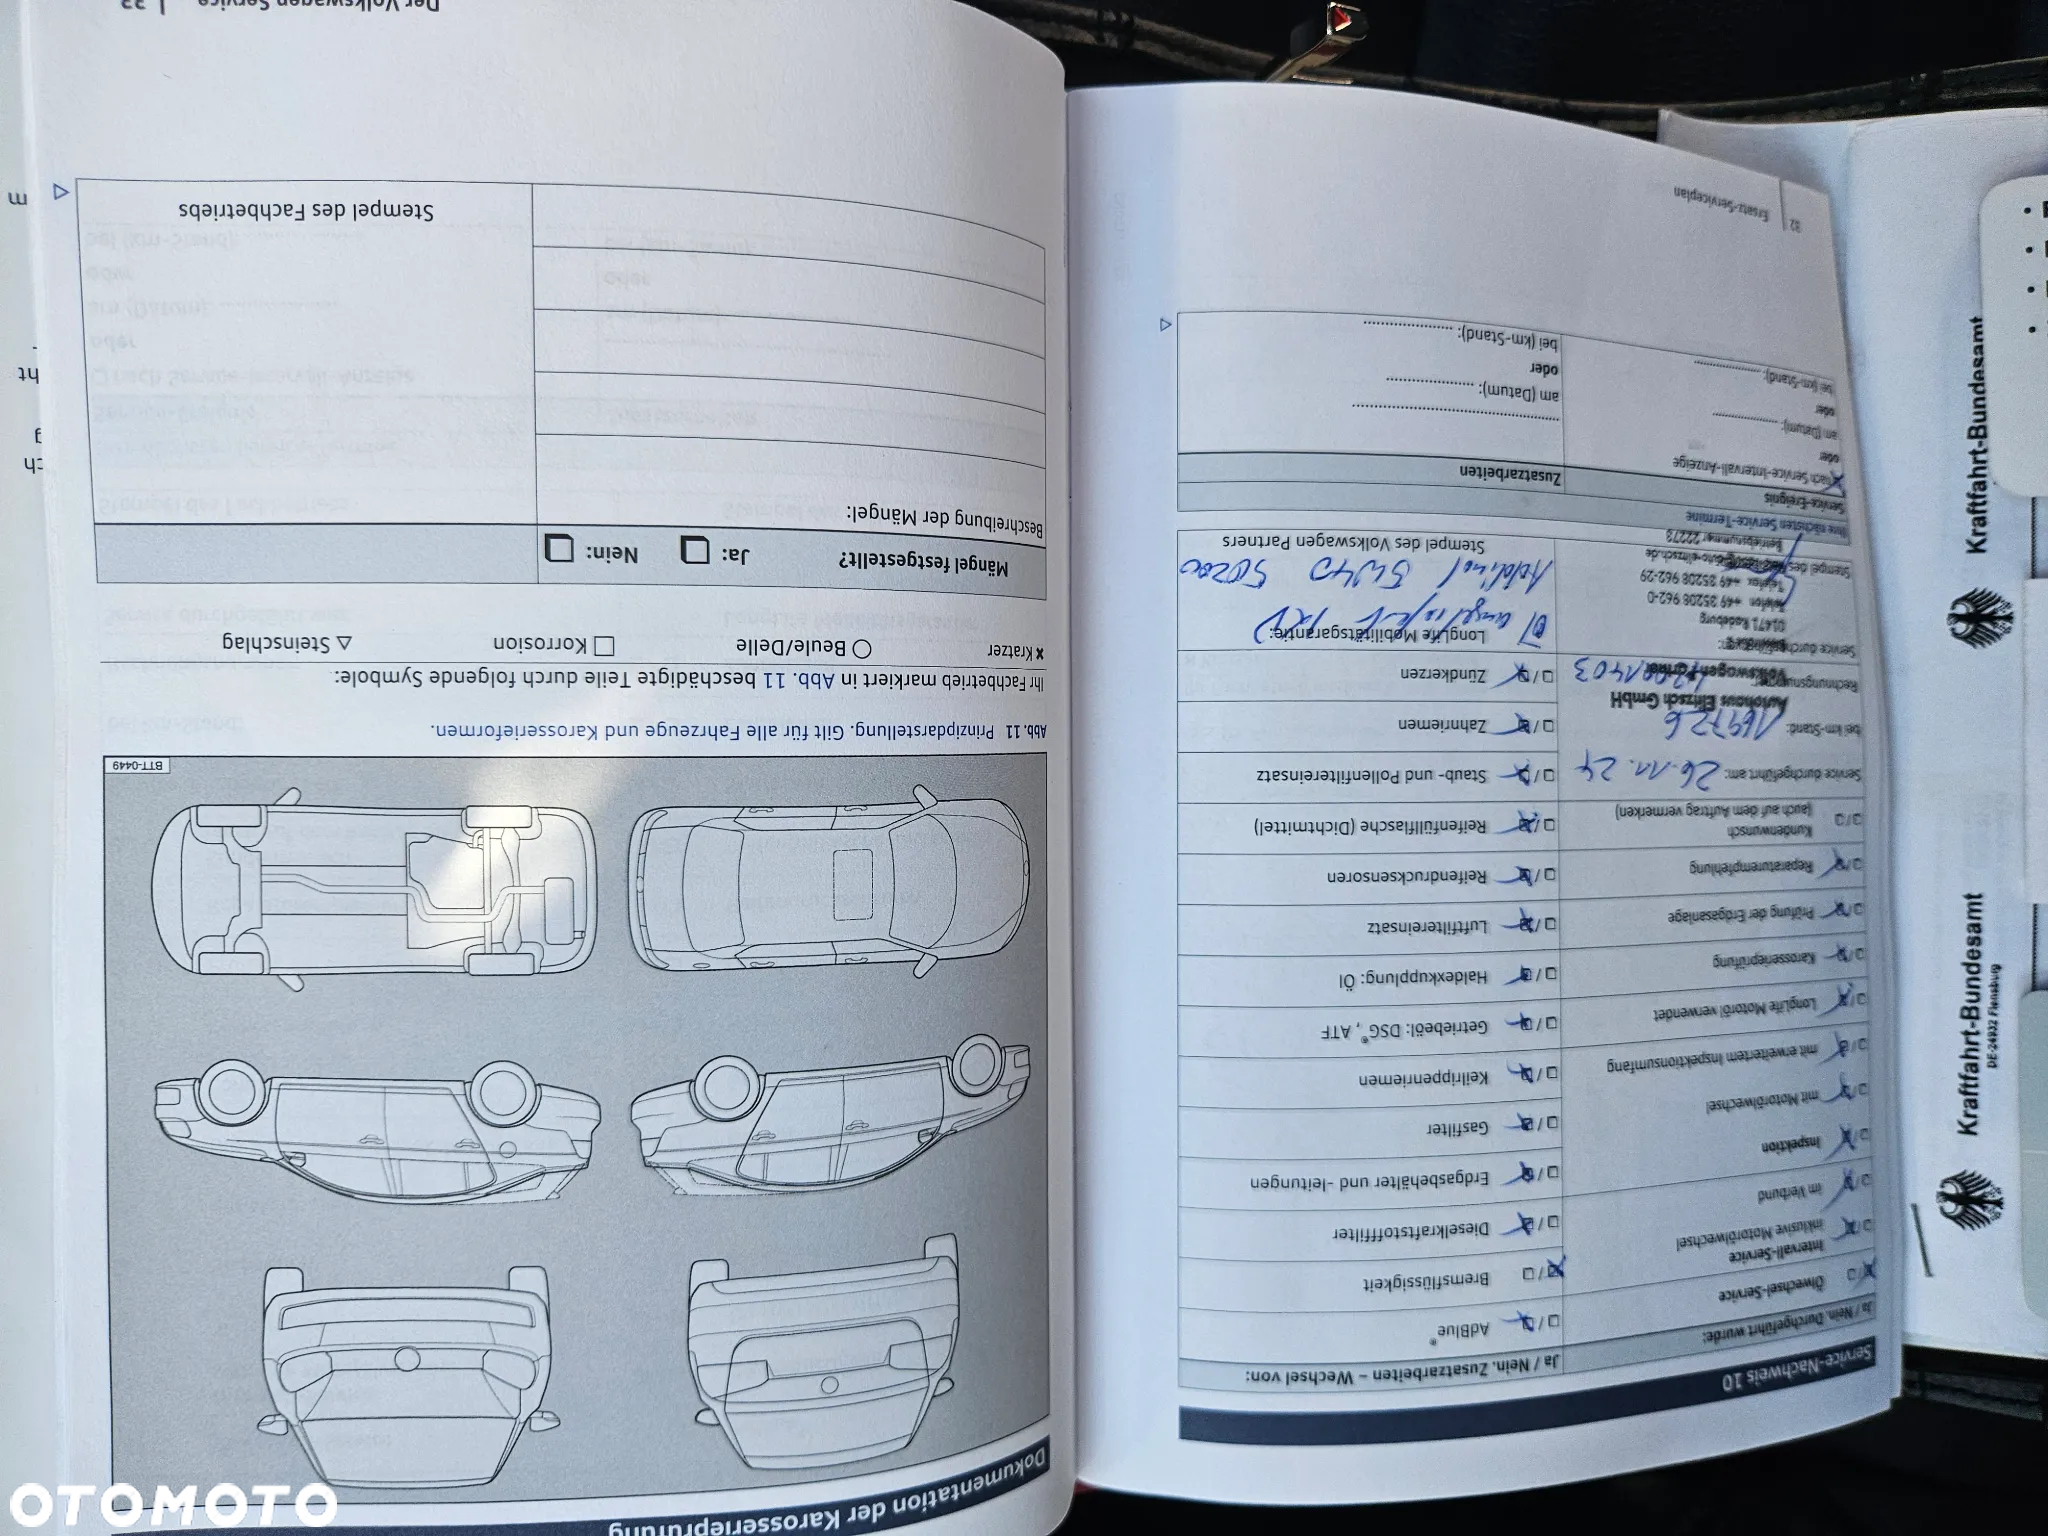 Service-Nachweis 10
Ja / Nein. Durchgeführt wurde:
Ölwechsel-Service
Intervall-Service
inklusive Motorölwechsel
im Verbund
Inspektion
mit Motorölwechsel
mit erweitertem Inspektionsumfang
LongLife Motoröl verwendet
Karosserieprüfung
Prüfung der Erdgasanlage
Reparaturempfehlung
Kundenwunsch
(auch auf dem Auftrag vermerken)
Service durchgeführt am: 26.11.24
bei km-Stand: 169726
Autohaus Elitzsch GmbH
Volkswagen Partner
01471 Radeburg
Telefon +49 35208 962-0
Telefax +49 35208 962-29
Betriebsnummer 22273
Ja / Nein. Zusatzarbeiten – Wechsel von:
AdBlue®
Bremsflüssigkeit
Dieselkraftstofffilter
Erdgasbehälter und -leitungen
Gasfilter
Keilrippenriemen
Getriebeöl: DSG®, ATF
Haldexkupplung: Öl
Luftfiltereinsatz
Reifendrucksensoren
Reifenfüllflasche (Dichtmittel)
Staub- und Pollenfiltereinsatz
Zahnriemen
Zündkerzen
LongLife Mobilitätsgarantie:
5W40 50200
Stempel des Volkswagen Partners
Ihre nächsten Service-Termine
Service-Ereignis
nach Service-Intervall-Anzeige
oder
am (Datum):
oder
bei (km-Stand):
Zusatzarbeiten
am (Datum):
oder
bei (km-Stand):
32 Ersatz-Serviceplan
Dokumentation der Karosserieprüfung
BTT-0449
Abb. 11 Prinzipdarstellung. Gilt für alle Fahrzeuge und Karosserieformen.
Ihr Fachbetrieb markiert in Abb. 11 beschädigte Teile durch folgende Symbole:
Kratzer Beule/Delle Korrosion Steinschlag
Mängel festgestellt? Ja: Nein:
Beschreibung der Mängel:
Stempel des Fachbetriebs
Der Volkswagen Service 33
Kraftfahrt-Bundesamt
Kraftfahrt-Bundesamt
DE-24932 Flensburg
OTOMOTO